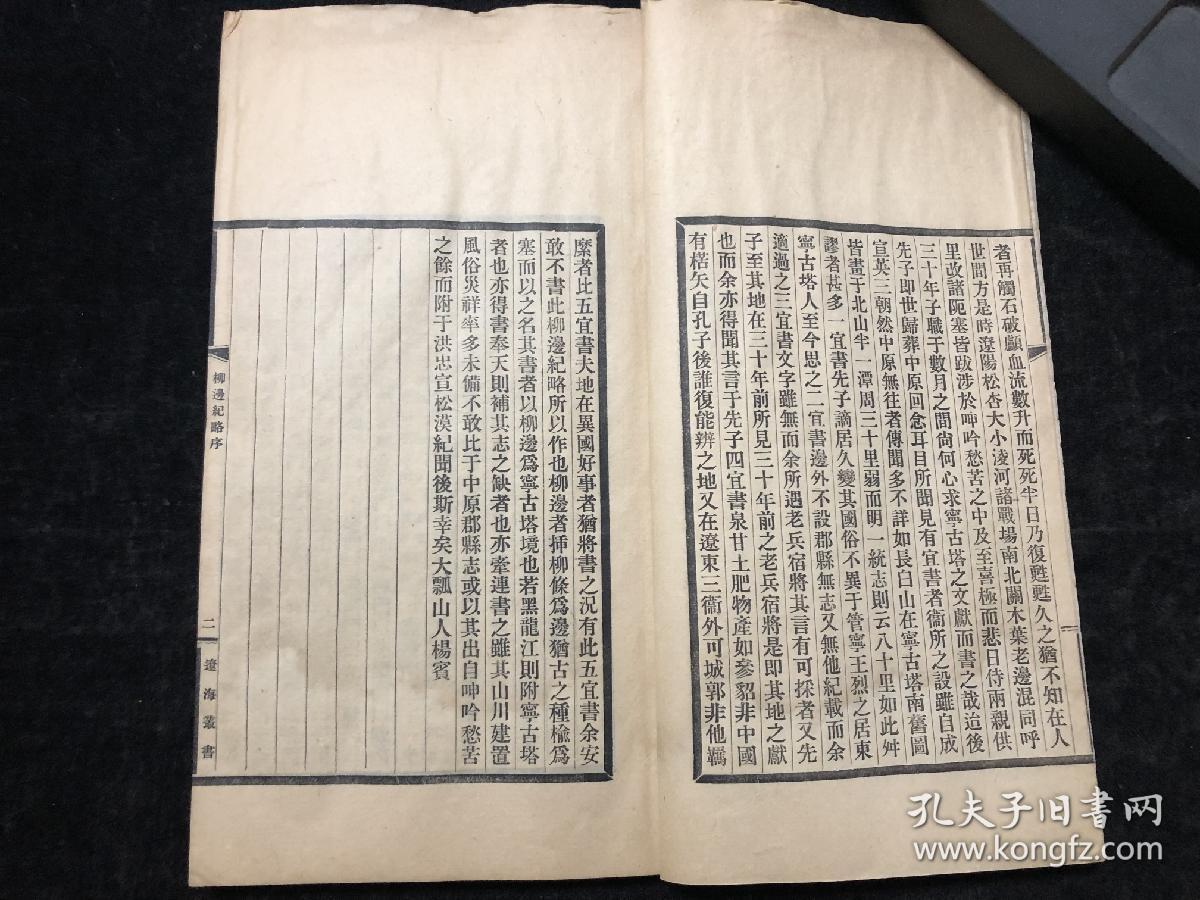 者再觸石破顱血流數升而死死半日乃復甦甦久之猶不知在人
世間方是時遼陽松杏大小淩河諸戰場南北關木葉老邊混同呼
里改諸阨塞皆跋涉於呻吟愁苦之中及至喜極而悲日侍兩親供
三十年子職于數月之間尙何心求寧古塔之文獻而書之哉迨後
先子卽世歸葬中原回念耳目所聞見有宜書者衞所之設雖自成
宣英三朝然中原無往者傳聞多不詳如長白山在寧古塔南舊圖
皆畫于北山半一潭周三十里弱而明一統志則云八十里如此舛
謬者甚多一宜書先子謫居久變其國俗不異于管寧王烈之居東
寧古塔人至今思之二宜書邊外不設郡縣無志又無他紀載而余
適過之三宜書文字雖無而余所遇老兵宿將其言有可採者又先
子至其地在三十年前所見三十年前之老兵宿將是卽其地之獻
也而余亦得聞其言于先子四宜書泉甘土肥物產如參貂非中國
有楛矢自孔子後誰復能辨之地又在遼東三衞外可城郭非他羈
縻者比五宜書夫地在異國好事者猶將書之況有此五宜書余安
敢不書此柳邊紀略所以作也柳邊者揷柳條爲邊猶古之種楡爲
塞而以之名其書者以柳邊爲寧古塔境也若黑龍江則附寧古塔
者也亦得書奉天則補其志之缺者也亦牽連書之雖其山川建置
風俗災祥率多未備不敢比于中原郡縣志或以其出自呻吟愁苦
之餘而附于洪忠宣松漠紀聞後斯幸矣大瓢山人楊賓
柳邊紀略序
二
遼海叢書
孔夫子旧书网
www.kongfz.com